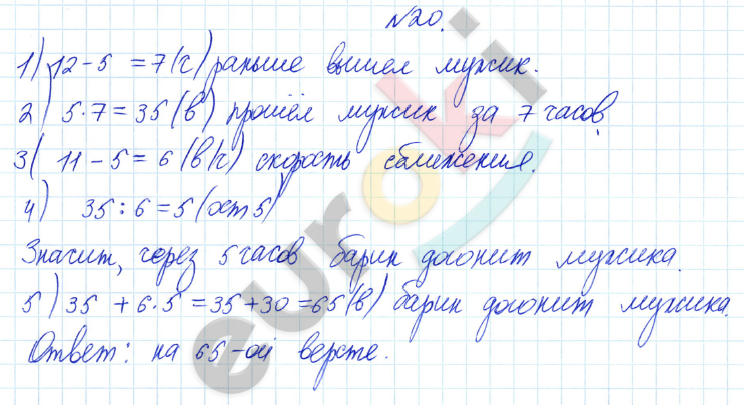 №20.
1) 12-5 = 7(ч) раньше вышел мужик.
2) 5·7=35(в) прошёл мужик за 7 часов.
3) 11-5=6(в/ч) скорость сближения.
4) 35:6=5(ост5)
Значит, через 5 часов барин догонит мужика.
5) 35 +6·5=35+30=65(в) барин догонит мужика.
Ответ: на 65-ой версте.
euroki